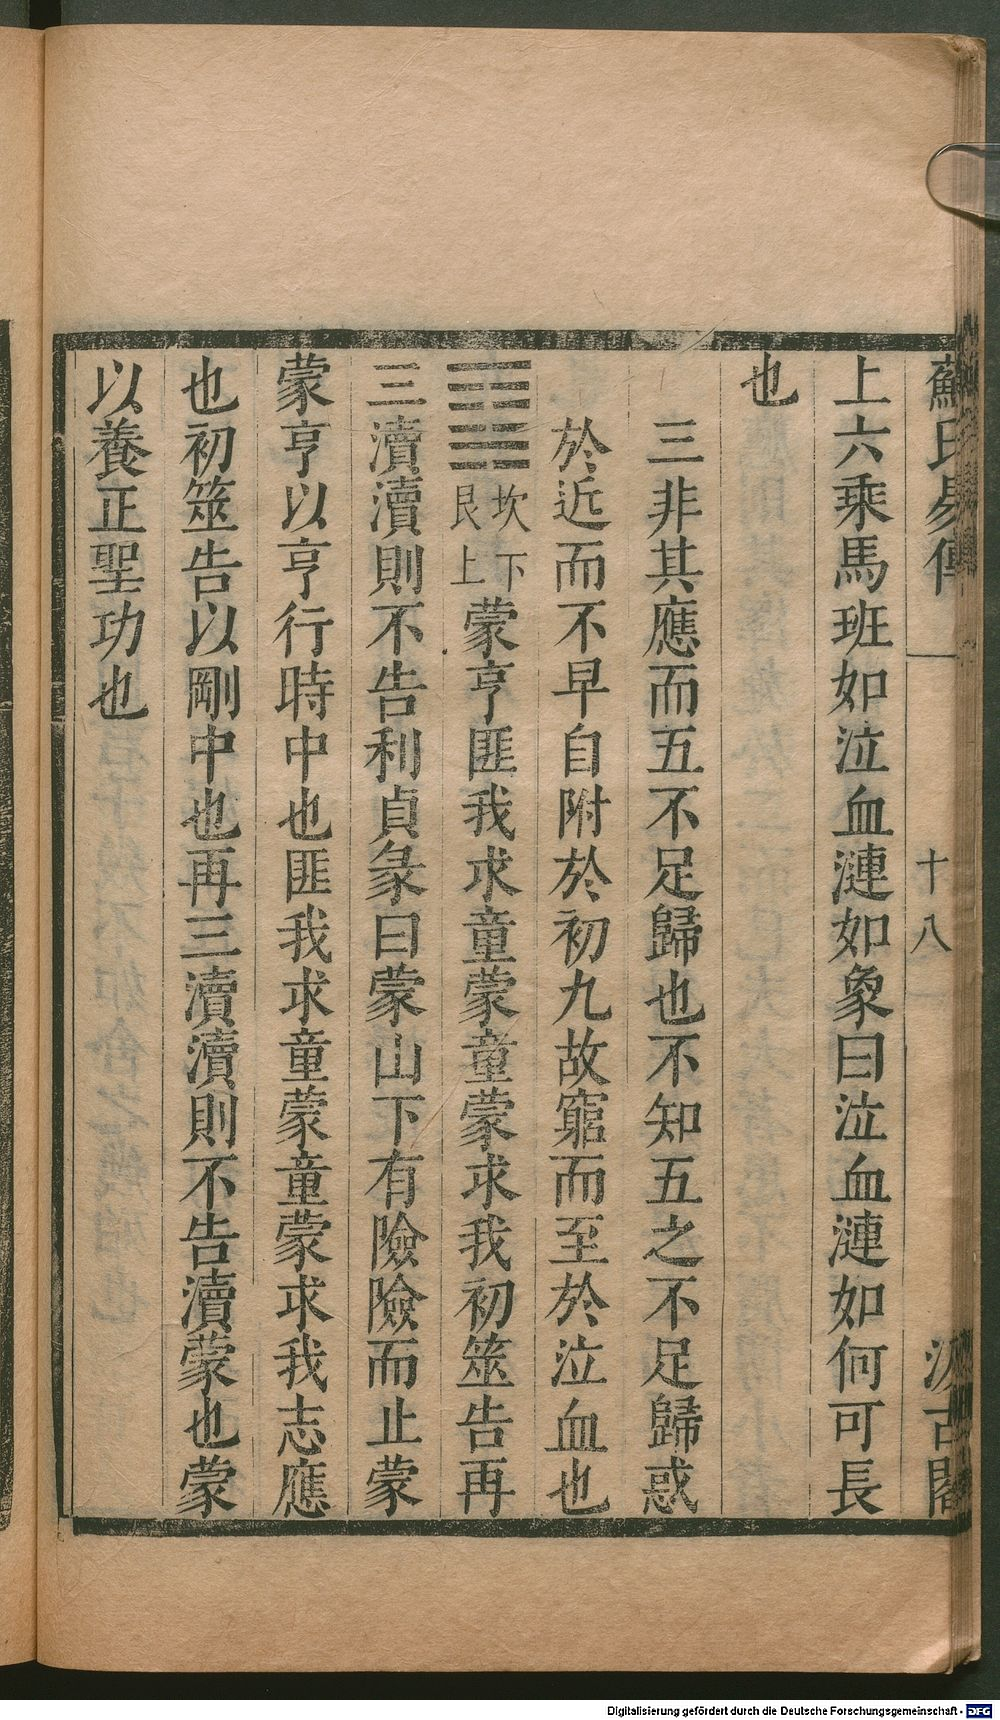 蘇氏易傳 一 十八 汲古閣
上六乘馬班如泣血漣如象曰泣血漣如何可長
也
三非其應而五不足歸也不知五之不足歸惑
於近而不早自附於初九故窮而至於泣血也
䷃坎下艮上蒙亨匪我求童蒙童蒙求我初筮告再
三瀆瀆則不告利貞彖曰蒙山下有險險而止蒙
蒙亨以亨行時中也匪我求童蒙童蒙求我志應
也初筮告以剛中也再三瀆瀆則不告瀆蒙也蒙
以養正聖功也
Digitalisierung gefördert durch die Deutsche Forschungsgemeinschaft - DFG